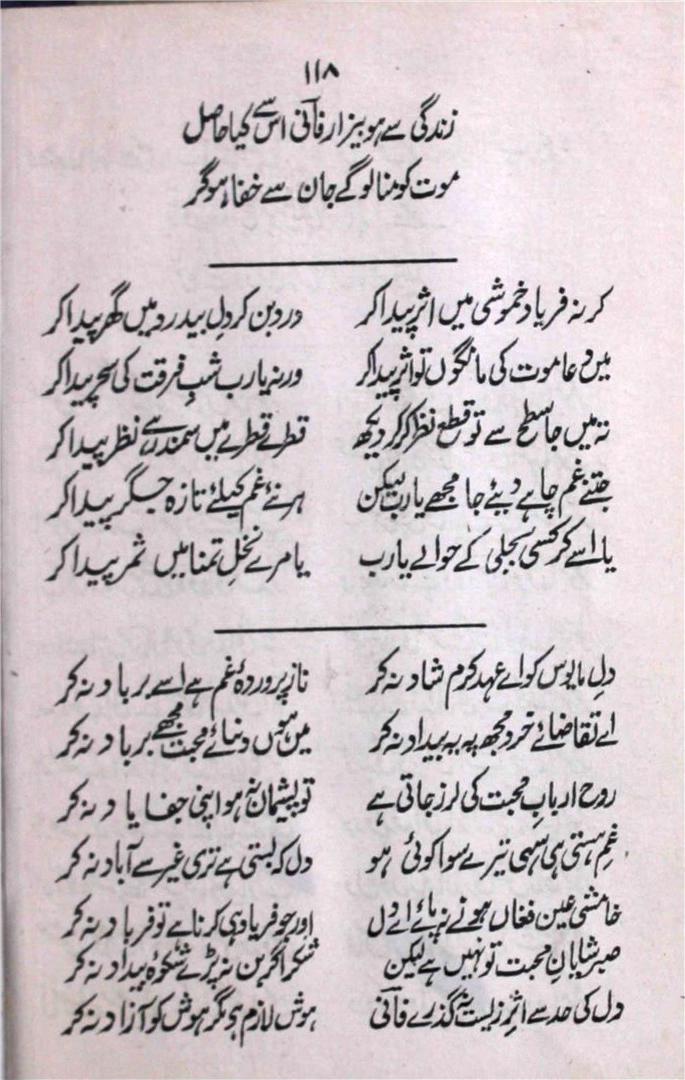 ۱۱۸
زندگی سے ہو بیزار فانی اس سے کیا حاصل
موت کو منا لوگے جان سے خفا ہو کر
کر نہ فریاد خموشی میں اثر پیدا کر درد بن کر دلِ بیدرد میں گھر پیدا کر
میں دعا موت کی مانگوں تو اثر پیدا کر ورنہ یارب شبِ فرقت کی سحر پیدا کر
تہ میں جا سطح سے تو قطعِ نظر کر کر دیکھ قطرے قطرے میں سمندر سے نظر پیدا کر
جتنے غم چاہے دیئے جا مجھے یارب لیکن ہر نئے غم کیلئے تازہ جگر پیدا کر
یا اسے کر کسی بجلی کے حوالے یارب یا مرے نخلِ تمنا میں ثمر پیدا کر
دلِ مایوس کو اے عہدِ کرم شاد نہ کر ناز پروردۂ غم ہے اسے برباد نہ کر
اے تقاضائے خرد مجھ پہ یہ بیداد نہ کر میں ہوں دنیائے محبت مجھے برباد نہ کر
روح اربابِ محبت کی لرز جاتی ہے تو پشیمان نہ ہو اپنی جفا یاد نہ کر
غمِ ہستی ہی سہی تیرے سوا کوئی ہو دل کہ بستی ہے تری غیر سے آباد نہ کر
خامشی عین فغاں ہونے نہ پائے اے دل اور جو فریاد ہی کرنا ہے تو فریاد نہ کر
صبر شایانِ محبت تو نہیں ہے لیکن شکر اگر بن نہ پڑے شکوۂ بیداد نہ کر
دل کی حد سے اثرِ زیست نہ گذرے فانی ہوش لازم ہے مگر ہوش کو آزاد نہ کر